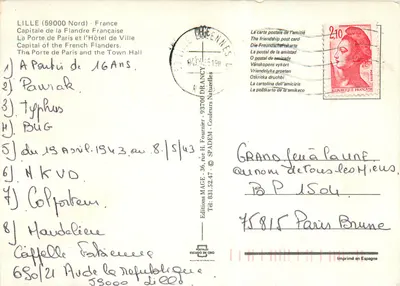 LILLE (59000 Nord) - France
Capitale de la Flandre Française
La Porte de Paris et l'Hôtel de Ville
Capital of French Flanders.
The Porte de Paris and the Town Hall
1) A Partir de 16 ANS.
2) Pawiak
3) Typhus
4) BUG
5) du 19 Avril 1943 au 8/5/43
6) N K V D
7) Colporteur
8) Mandelieu
Cappelle Fabienne
690/21 Av de la république
59000 Lille
Editions MAGE - 36, rue H. Fournier - 93700 DRANCY
Tél: 831.52.47 © SPADEM - Couleurs Naturelles
La carte postale de l'amitié
The friendship post card
Die Freundschaftskarte
La postal de amistad
O postal da amizade
Vänskapens vykort
Vriendschaps groeten
La cartolina dell'amicizia
2,10
GRAND Jeu à la UNE
au nom de tous les Miens
B P 1504
75815 Paris Brune
Imprimé en Espagne